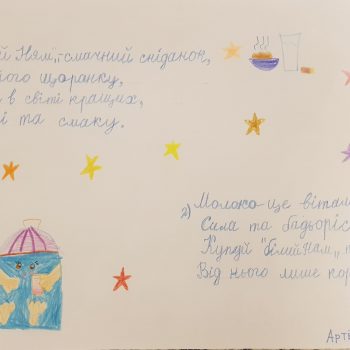 й Ням",- смачний сніданок,
його щоранку,
в світі кращих,
і та смаку.
2) Молоко - це вітам
Сила та бадьоріс
Купуй "Білий Ням", н
Від нього лише кор
Арті